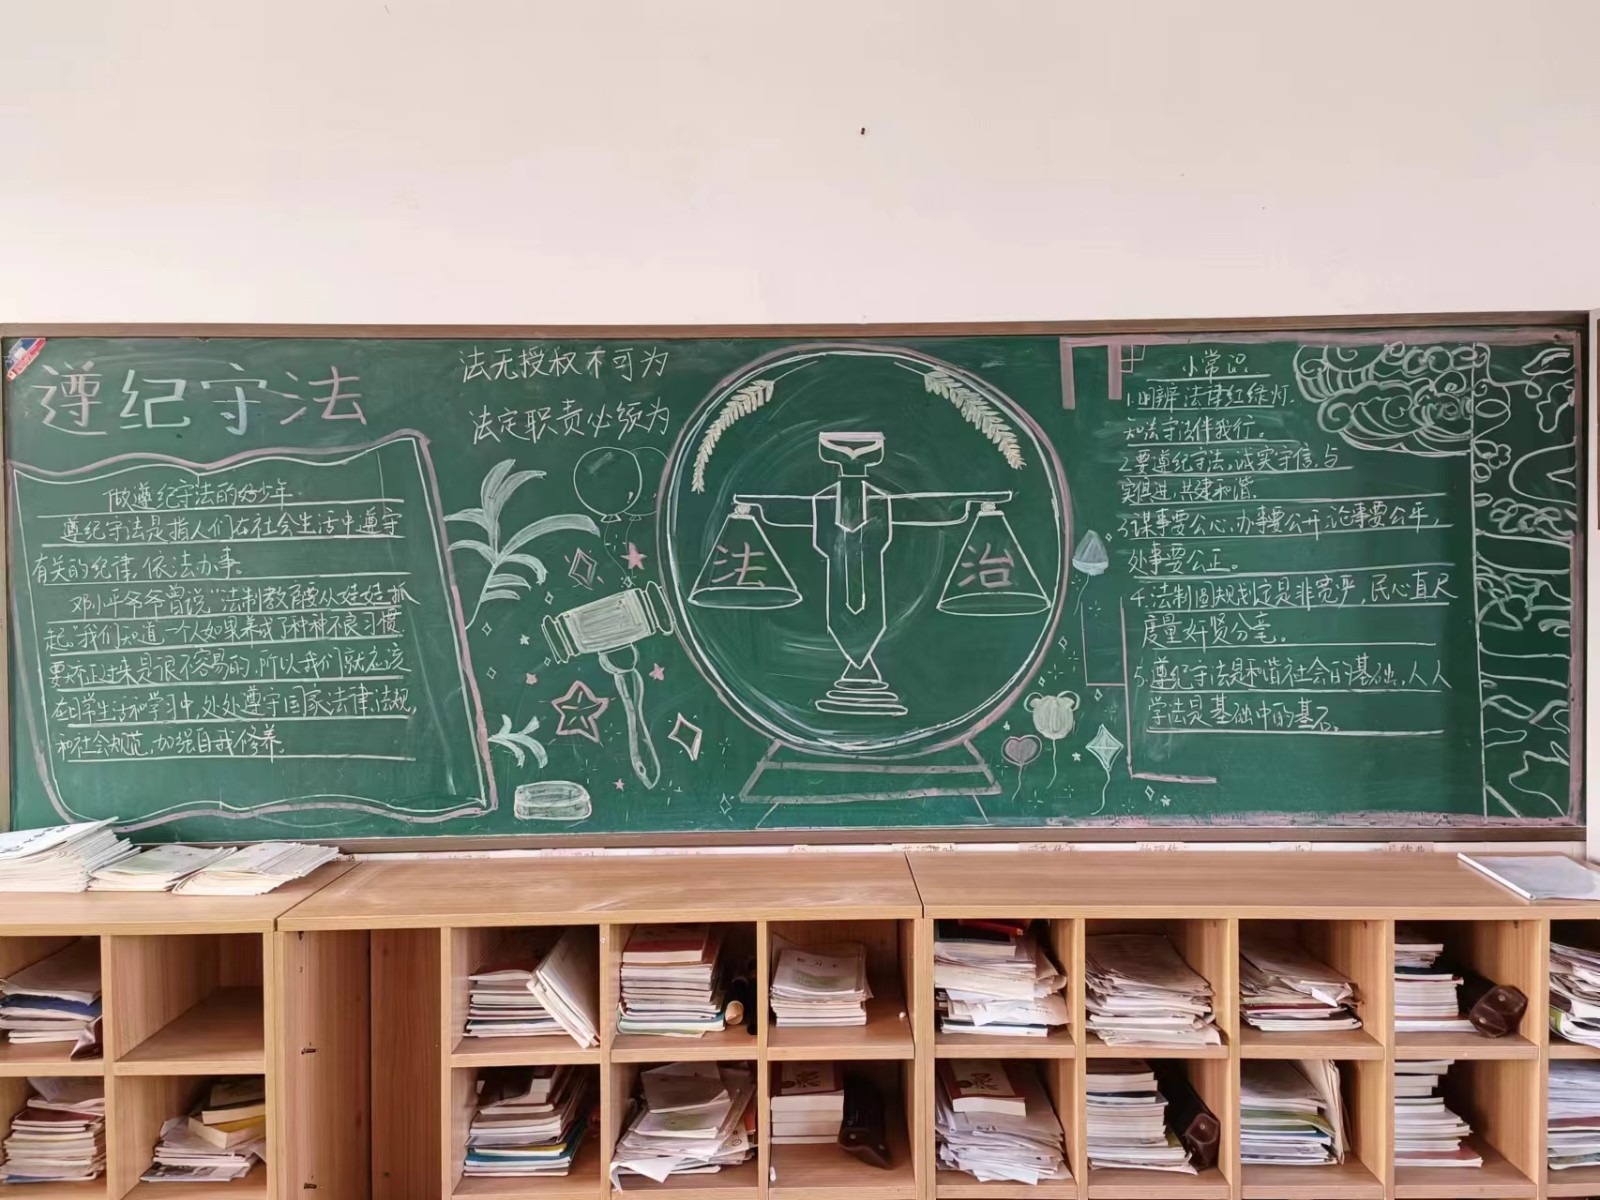 遵纪守法
做遵纪守法的好少年
遵纪守法是指人们在社会生活中遵守
有关的纪律,依法办事。
邓小平爷爷曾说"法制教育要从娃娃抓
起"我们知道,一个人如果养成了种种不良习惯
要改正过来是很不容易的,所以我们就应该
在日常生活和学习中,处处遵守国家法律,法规,
和社会规范,加强自我修养。
法无授权不可为
法定职责必须为
法
治
小常识
1.明辨法律红绿灯,
知法守法伴我行。
2.要遵纪守法,诚实守信,与
实俱进,共建和谐。
3.谋事要公心,办事要公开,论事要公平,
处事要公正。
4.法制圆规划定是非宽严,民心直尺
度量奸贤分毫。
5.遵纪守法是和谐社会的基础,人人
学法是基础中的基石。